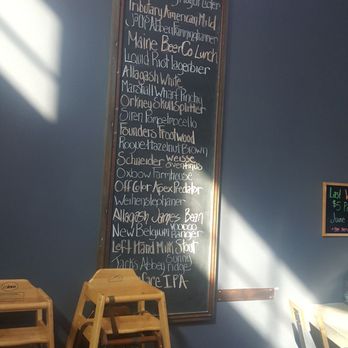 Tributary American Mild
Jack Abbey
Maine Beer Co Lunch
Liquid Riot Lagerbier
Allagash White
Marshall Wharf
Orkney Skull Splitter
Siren Pompelmocello
Founders Frootwood
Rogue Hazelnut Brown
Schneider Weisse Aventinus
Oxbow Farmhouse
Off Color Apex Predator
Weihenstephaner
Allagash James Bean
New Belgium Voodoo Ranger
Left Hand Milk Stout
Jack's Abbey Sunny Ridge
IPA
Last
$5
June